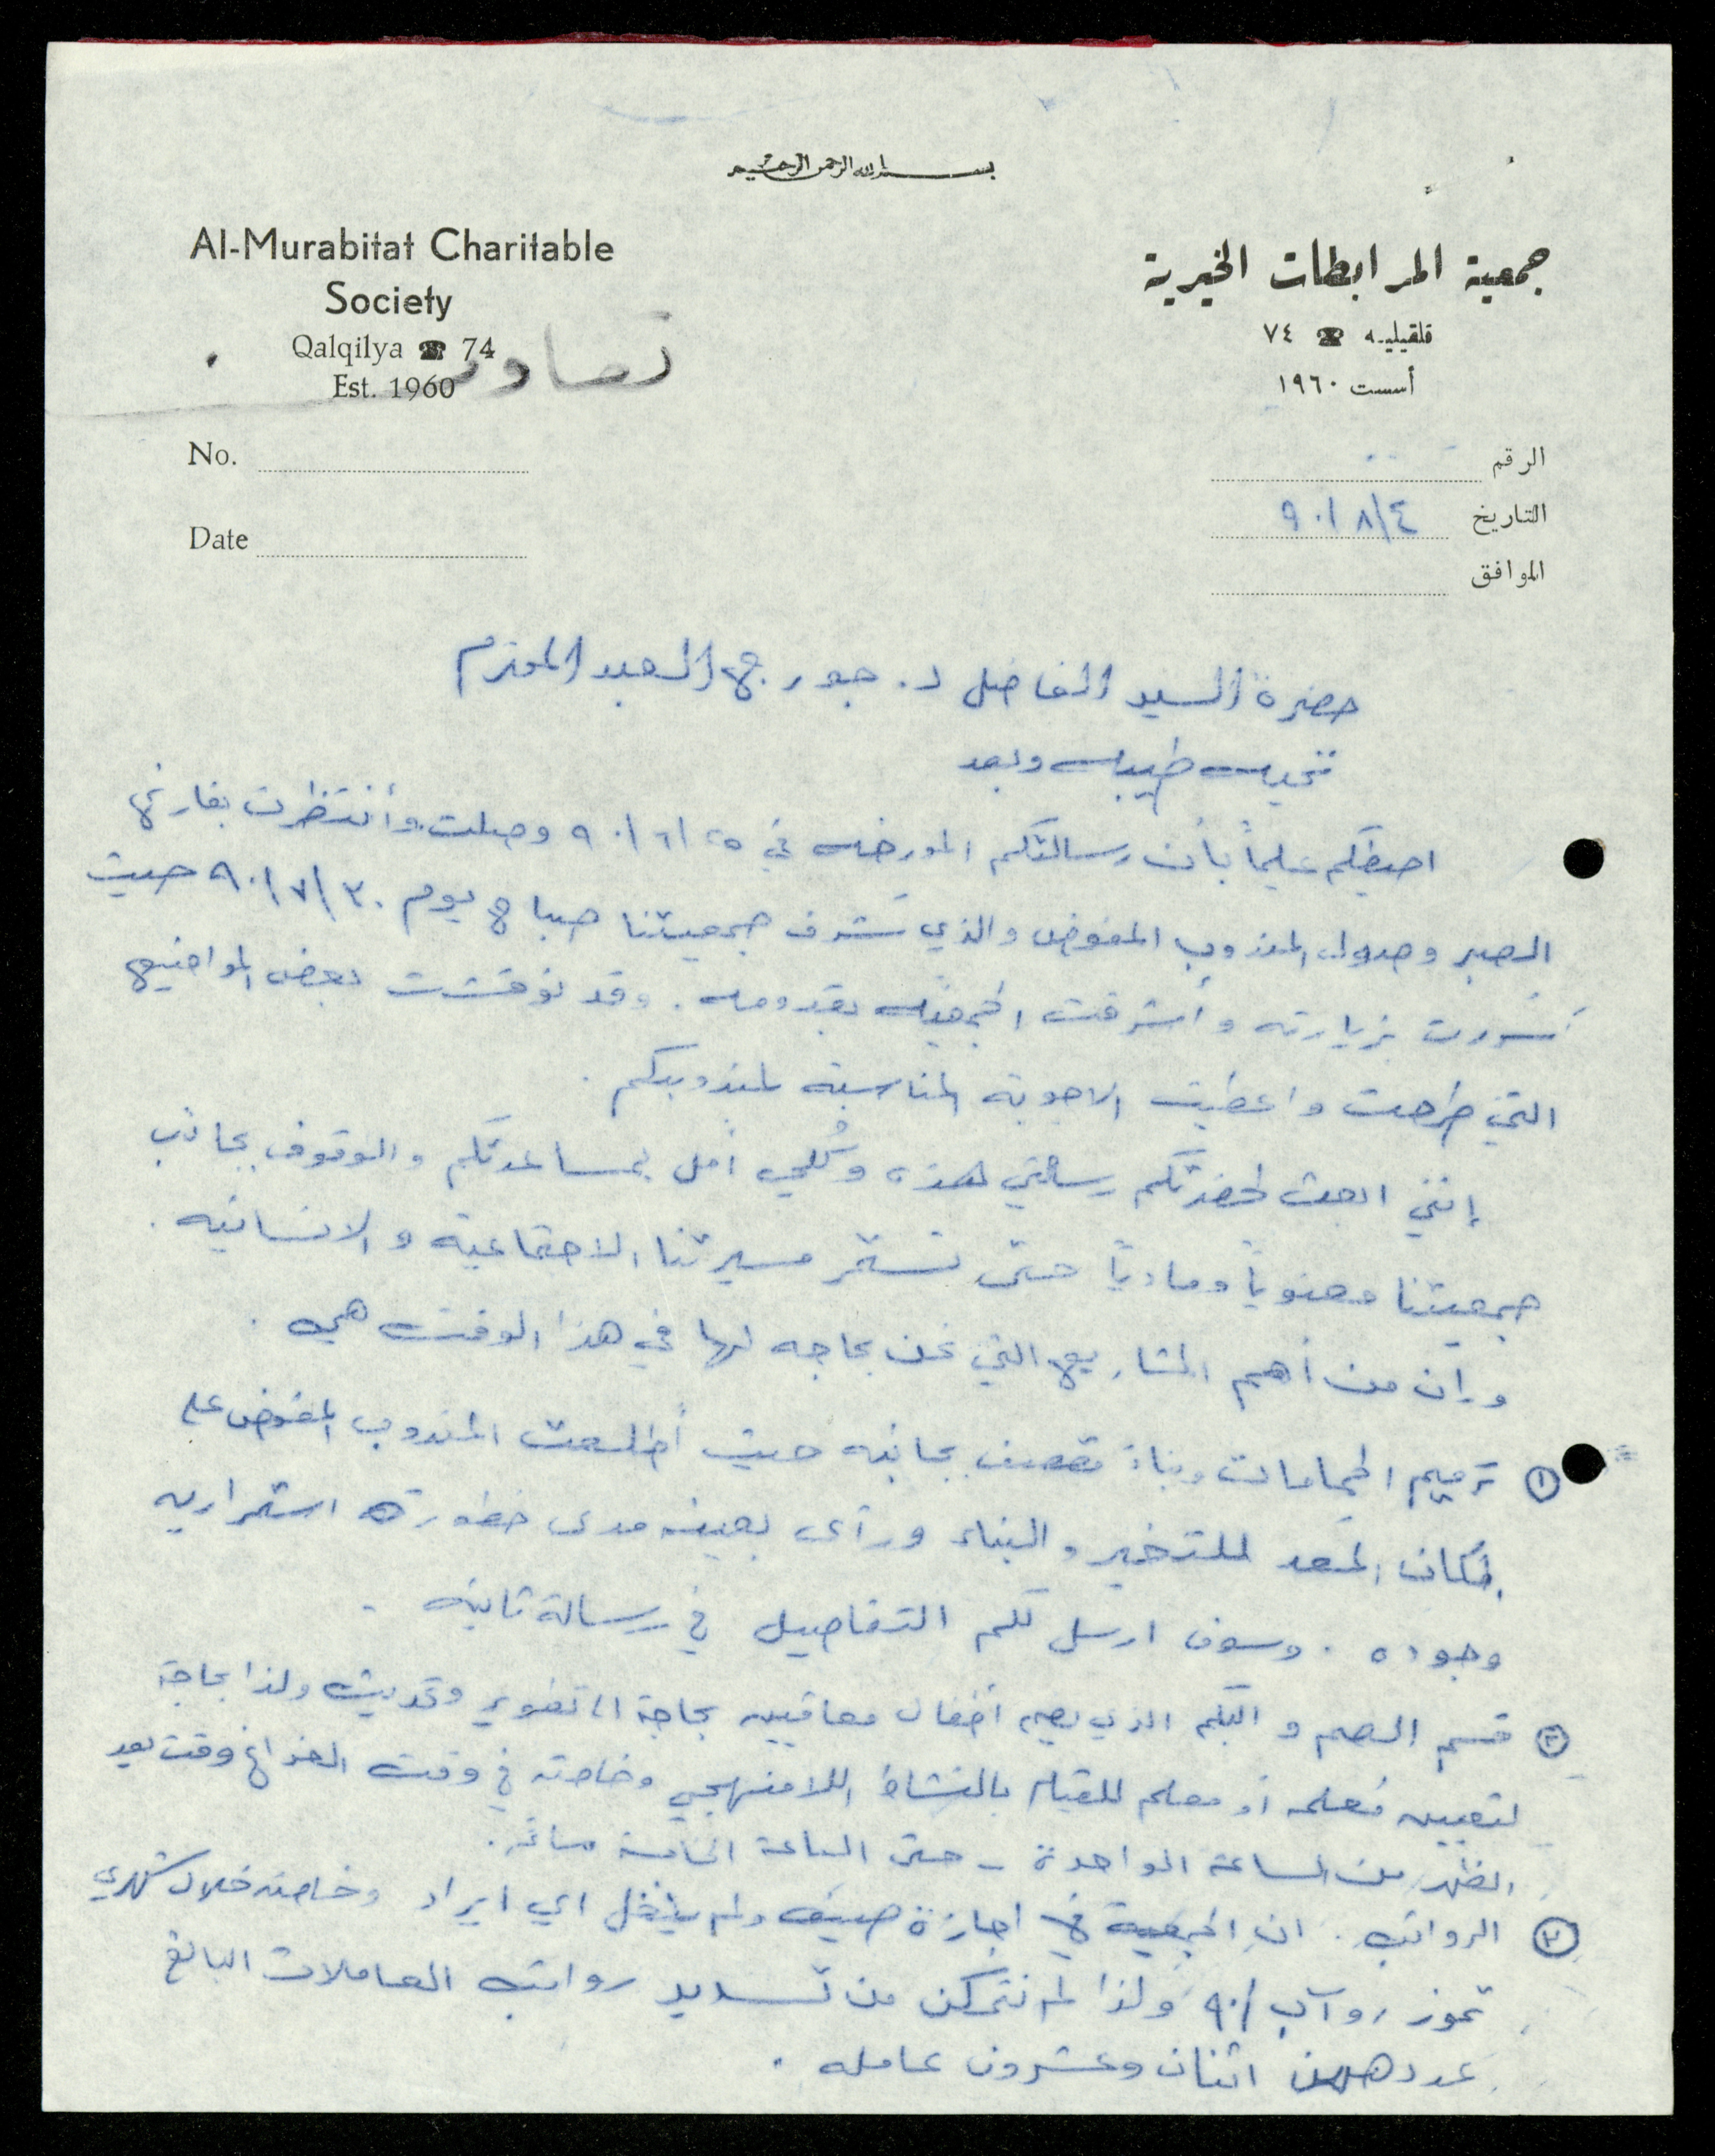 بسم الله الرحمن الرحيم
Al-Murabitat Charitable
Society
Qalqilya ☎ 74
Est. 1960
جمعية المرابطات الخيرية
قلقيليه ☎ ٧٤
أسست ١٩٦٠
No.
Date
الرقم
التاريخ ٩٠/٨/٤
الموافق
حضرة السيد الفاضل د. جورج العبد المحترم
تحيه طيبه وبعد
احيطكم علماً بأن رسالتكم المورخه في ٩٠/٦/٢٥ وصلت وأنتظرت بفارغ
الصبر وصول المندوب المفوض والذي شرف جمعيتنا صباح يوم ٩٠/٧/٣٠ حيث
سررت بزيارته وأشرقت الجمعيه بقدومه. وقد نوقشت بعض المواضيع
التي طرحت واعطيت الاجوبة المناسبة لمندوبكم.
إنني ابعث لحضرتكم رسالتي هذه وكُلي أمل بمساعدتكم والوقوف بجانب
جمعيتنا معنوياً ومادياً حتى تستمر مسيرتنا الاجتماعية والانسانيه.
وان من أهم المشاريع التي نحن بحاجه لها في هذا الوقت هي.
① ترميم الحمامات وبناء مقصف بجانبه حيث أطلعت المندوب المفوض على
المكان المعد للترخير والبناء ورآى بعينه مدى خطورة استمراريه
وجوده. وسوف ارسل لكم التفاصيل في رسالة ثانيه.
② قسم الصم والبكم الذي يضم أطفال معاقين بحاجة الى تطوير وتحديث ولذا بحاجة
لتعيين مُعلمه أو معلم للقيام بالنشاط اللامنهجي وخاصته في وقت الفراغ وقت بعد
الظهر من الساعة الواحدة - حتى الساعة الخامسة مساءً.
③ الرواتب. ان الجمعية في اجازة صيفيه ولم يدخل اي ايراد وخاصته خلال شهري
تموز وآب /٩٠ ولذا لم نتمكن من تسديد رواتب العاملات البالغ
عددهن اثنان وعشرون عامله.